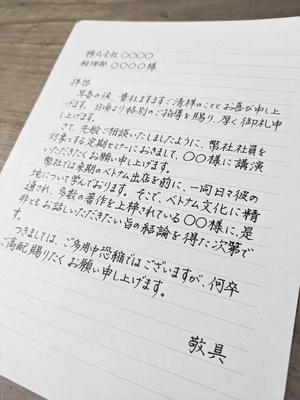 株式会社 〇〇〇〇
経理部 〇〇〇〇様
拝啓
早春の候、貴社ますますご清祥のこととお喜び申し上
げます。日頃より格別のご指導を賜り、厚く御礼申
し上げます。
さて、先般ご相談いたしましたように、弊社社員を
対象とする定期セミナーにおきまして、〇〇様に講演
いただきたくお願い申し上げます。
弊社では来期のベトナム出店を前に、一同日々彼の
地について学んでおります。そこで、ベトナム文化に精
通され、多数の著作を上梓されている〇〇様に、是
非ともお話しいただきたい旨の結論を得た次第で
す。
つきましては、ご多用中恐縮ではございますが、何卒
ご高配賜りたくお願い申し上げます。
敬具